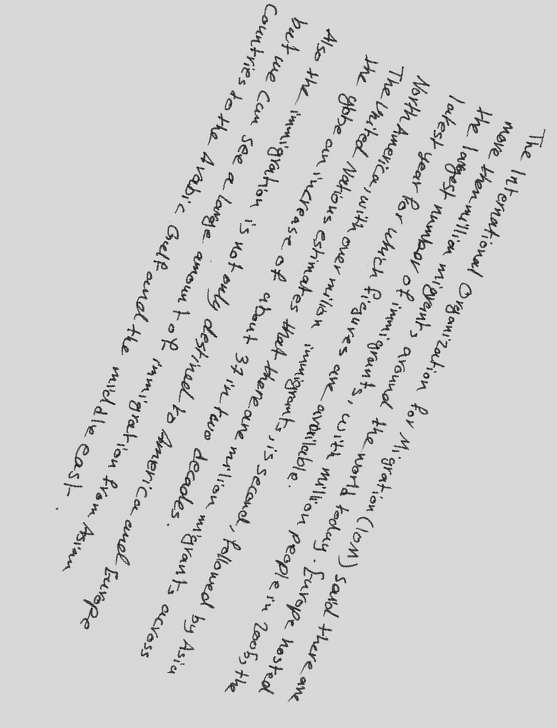 The International Organization for Migration (IOM) said there are
more then million migrants around the world today. Europe hosted
the largest number of immigrants, with million people in 2005, the
latest year for which figures are available.
North America, with over million immigrants, is second, followed by Asia
The United Nations estimates that there are million migrants across
the globe an increase of about 37 in two decades.
Also the immigration is not only destined to America and Europe
but we can see a large amount of immigration from Asian
Countries to the Arabic Gulf and the middle east.